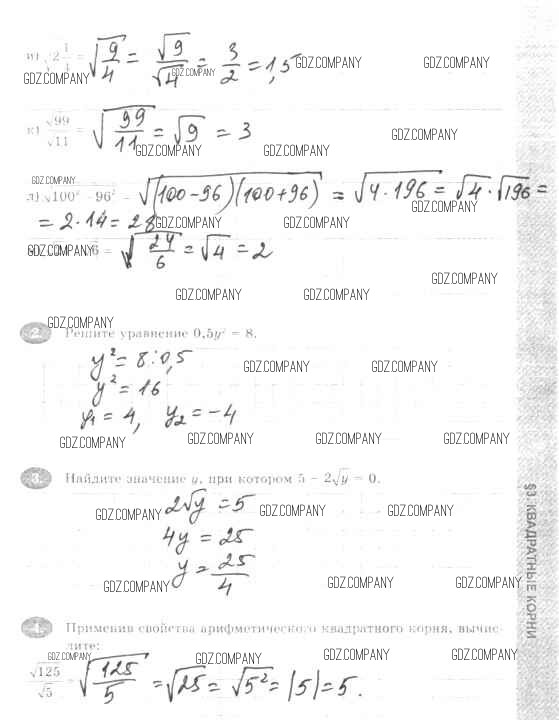 и) √2 1/4 = √(9/4) = √9/√4 = 3/2 = 1,5 GDZ.COMPANY GDZ.COMPANY
GDZ.COMPANY GDZ.COMPANY
к) √99/√11 = √(99/11) = √9 = 3 GDZ.COMPANY
GDZ.COMPANY GDZ.COMPANY
GDZ.COMPANY
л) √100² - 96² = √(100-96)(100+96) = √4·196 = √4·√196 =
GDZ.COMPANY
= 2·14 = 28 GDZ.COMPANY GDZ.COMPANY
GDZ.COMPANY 6 = √(24/6) = √4 = 2
GDZ.COMPANY
GDZ.COMPANY GDZ.COMPANY
GDZ.COMPANY
2. Решите уравнение 0,5y² = 8.
y² = 8:0,5 GDZ.COMPANY GDZ.COMPANY
y² = 16
y₁ = 4, y₂ = -4
GDZ.COMPANY GDZ.COMPANY GDZ.COMPANY GDZ.COMPANY
3. Найдите значение y, при котором 5 - 2√y = 0.
GDZ.COMPANY 2√y = 5 GDZ.COMPANY GDZ.COMPANY
4y = 25
y = 25/4
GDZ.COMPANY GDZ.COMPANY GDZ.COMPANY
4. Применив свойства арифметического квадратного корня, вычис-
лите:
GDZ.COMPANY GDZ.COMPANY GDZ.COMPANY GDZ.COMPANY
√125/√5 = √(125/5) = √25 = √5² = |5| = 5.
§3. КВАДРАТНЫЕ КОРНИ